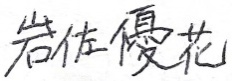 岩佐優花